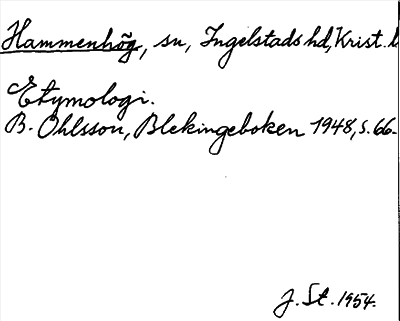 Hammenhög, sn, Ingelstads hd, Krist. l
Etymologi.
B. Ohlsson, Blekingeboken 1948, s. 66-
J. St. 1954.